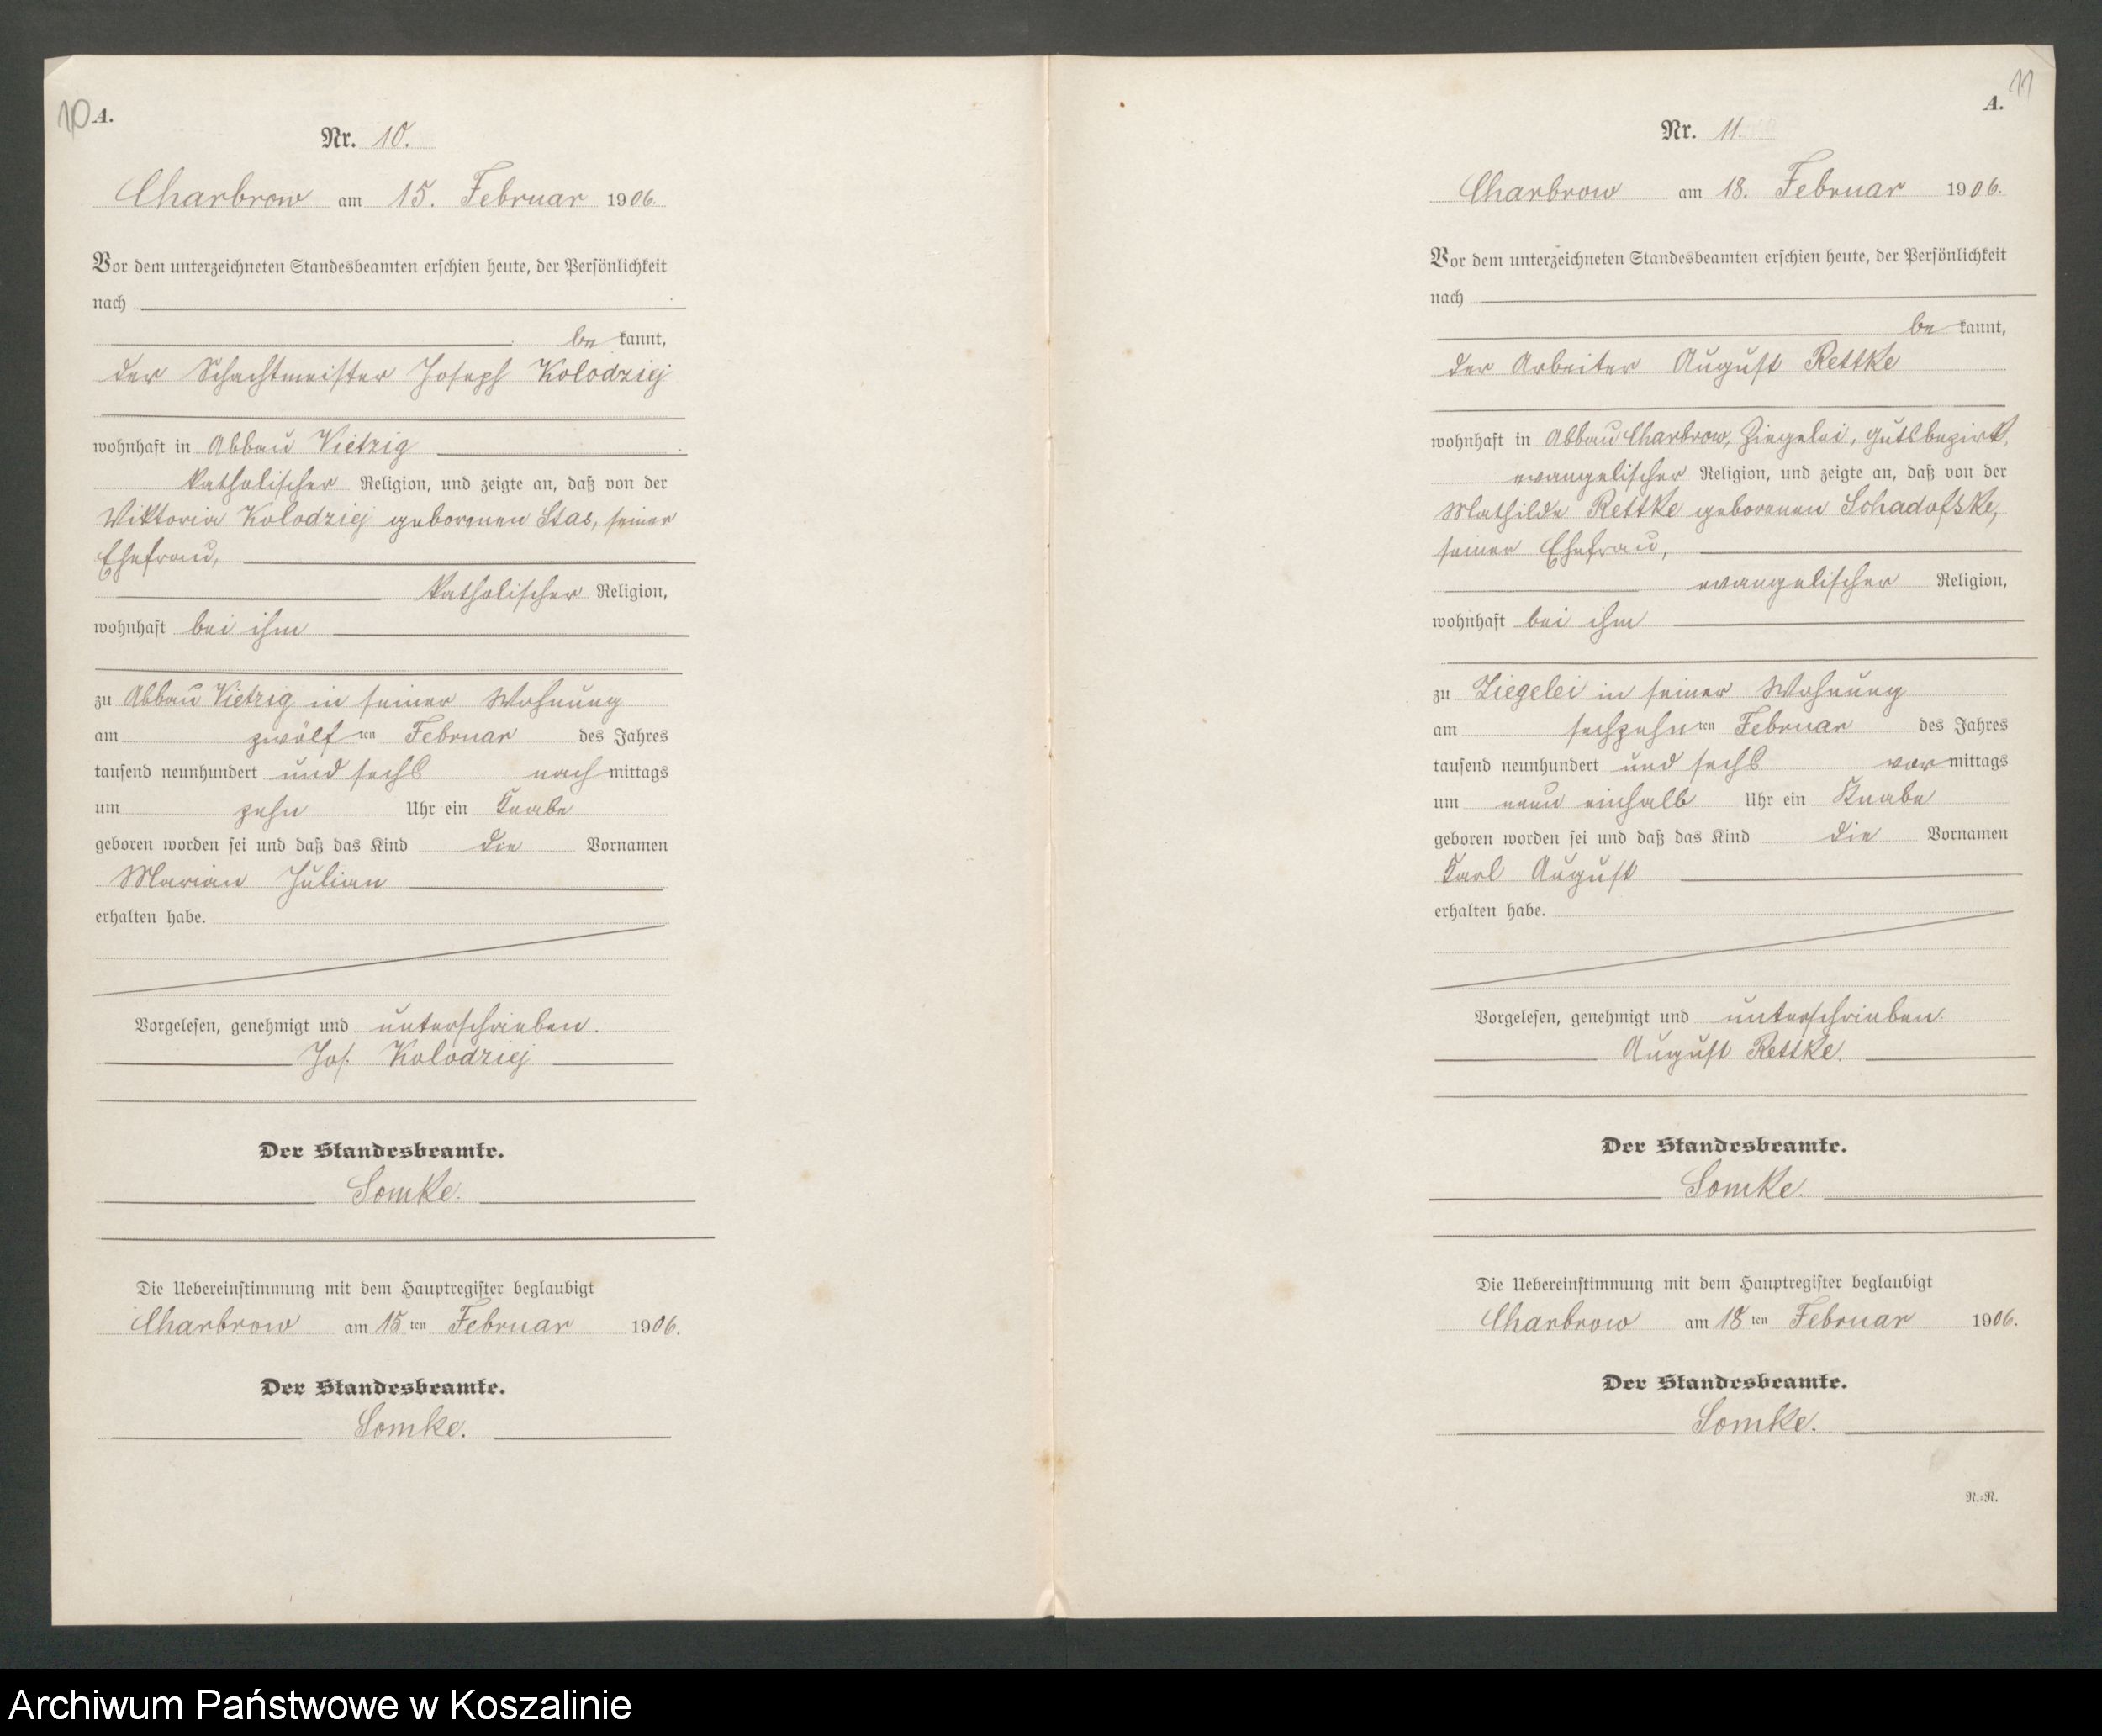 10 A.
Nr. 10.
Charbrow am 15. Februar 1906.
Vor dem unterzeichneten Standesbeamten erschien heute, der Persönlichkeit
nach
be kannt,
der Schachtmeister Joseph Kolodziej
wohnhaft in Abbau Vietzig
katholischer Religion, und zeigte an, daß von der
Wiktoria Kolodziej geborenen Stas, seiner
Ehefrau,
katholischer Religion,
wohnhaft bei ihm
zu Abbau Vietzig in seiner Wohnung
am zwölf ten Februar des Jahres
tausend neunhundert und sechs nach mittags
um zehn Uhr ein Knabe
geboren worden sei und daß das Kind die Vornamen
Marian Julian
erhalten habe.
Vorgelesen, genehmigt und unterschrieben.
Jos. Kolodziej
Der Standesbeamte.
Somke.
Die Uebereinstimmung mit dem Hauptregister beglaubigt
Charbrow am 15 ten Februar 1906.
Der Standesbeamte.
Somke.
11
A.
Nr. 11.
Charbrow am 18. Februar 1906.
Vor dem unterzeichneten Standesbeamten erschien heute, der Persönlichkeit
nach
be kannt,
der Arbeiter August Rettke
wohnhaft in Abbau Charbrow, Ziegelei, Gutsbezirk,
evangelischer Religion, und zeigte an, daß von der
Mathilde Rettke geborenen Schadofske,
seiner Ehefrau,
evangelischer Religion,
wohnhaft bei ihm
zu Ziegelei in seiner Wohnung
am sechzehn ten Februar des Jahres
tausend neunhundert und sechs vor mittags
um neun einhalb Uhr ein Knabe
geboren worden sei und daß das Kind die Vornamen
Karl August
erhalten habe.
Vorgelesen, genehmigt und unterschrieben.
August Rettke.
Der Standesbeamte.
Somke.
Die Uebereinstimmung mit dem Hauptregister beglaubigt
Charbrow am 18 ten Februar 1906.
Der Standesbeamte.
Somke.
N.=R.
Archiwum Państwowe w Koszalinie